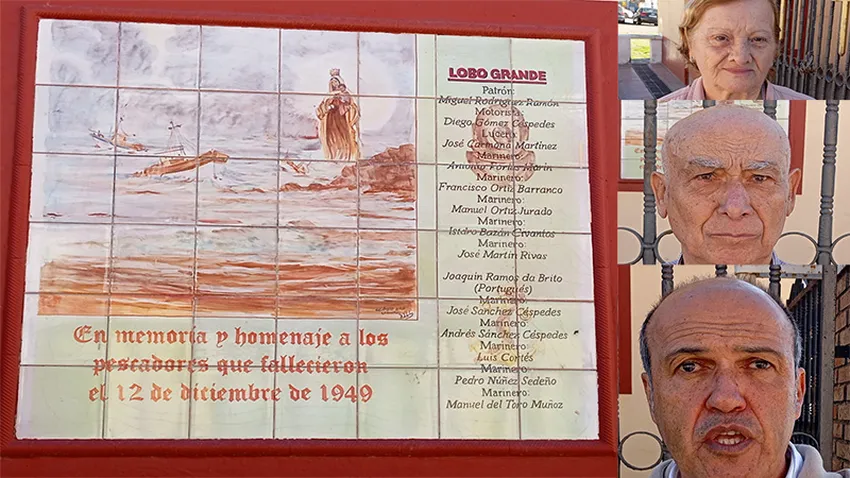 LOBO GRANDE
Patrón:
Miguel Rodríguez Ramón
Motorista:
Diego Gómez Céspedes
Lucero:
José Carmona Martínez
Marinero:
Antonio Porras Marín
Marinero:
Francisco Ortiz Barranco
Marinero:
Manuel Ortiz Jurado
Marinero:
Isidro Bazán Civantos
Marinero:
José Martín Rivas
Joaquín Ramos da Brito
(Portugués)
Marinero:
José Sánchez Céspedes
Marinero:
Andrés Sánchez Céspedes
Marinero:
Luis Cortés
Marinero:
Pedro Núñez Sedeño
Marinero:
Manuel del Toro Muñoz
En memoria y homenaje a los
pescadores que fallecieron
el 12 de diciembre de 1949